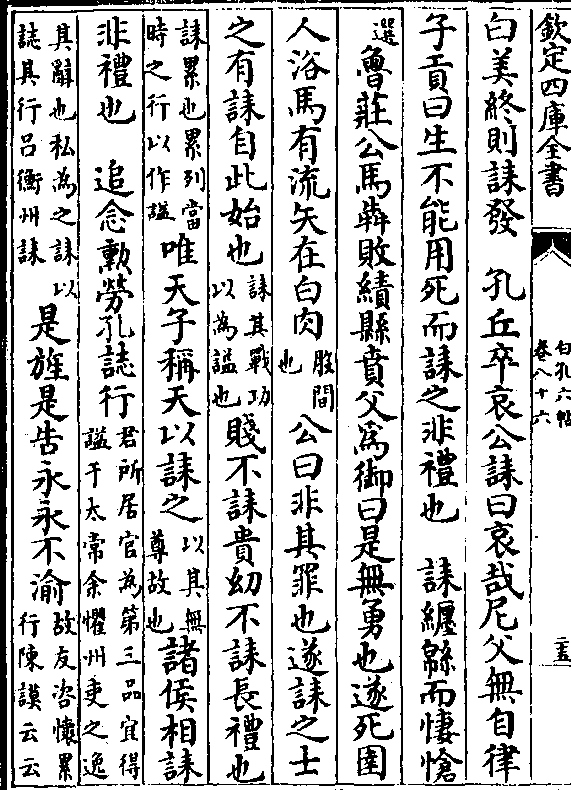 欽定四庫全書
白孔六帖
卷八十六
二五
曰美終則誄發　孔丘卒哀公誄曰哀哉尼父無自律
子貢曰生不能用死而誄之非禮也　誄纏緜而悽愴
選
魯莊公馬犇敗績縣賁父為御曰是無勇也遂死圉
人浴馬有流矢在白肉股間也公曰非其罪也遂誄之士
之有誄自此始也誄其戰功以為謚也賤不誄貴幼不誄長禮也
誄累也累列當時之行以作謚唯天子稱天以誄之以其無尊故也諸侯相誄
非禮也　追念勲勞孔誌行君所居官為第三品宜得謚于太常余懼州吏之逸
其辭也私為之誄以誌其行吕衡州誄是旌是告永永不渝故友咨懷累行陳謨云云